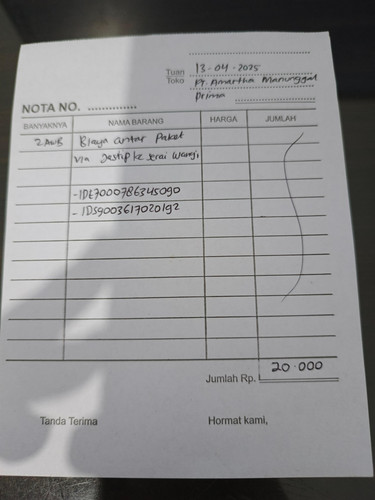 13-04-2025
Tuan
Toko
PT. Amartha Manunggal
Prima
NOTA NO. ..............
BANYAKNYA NAMA BARANG HARGA JUMLAH
2 AWB Biaya antar Paket
Via Jastip ke Serai Wangi
- IDE7000786345090
- IDS9003617020192
Jumlah Rp. 20.000
Tanda Terima Hormat kami,